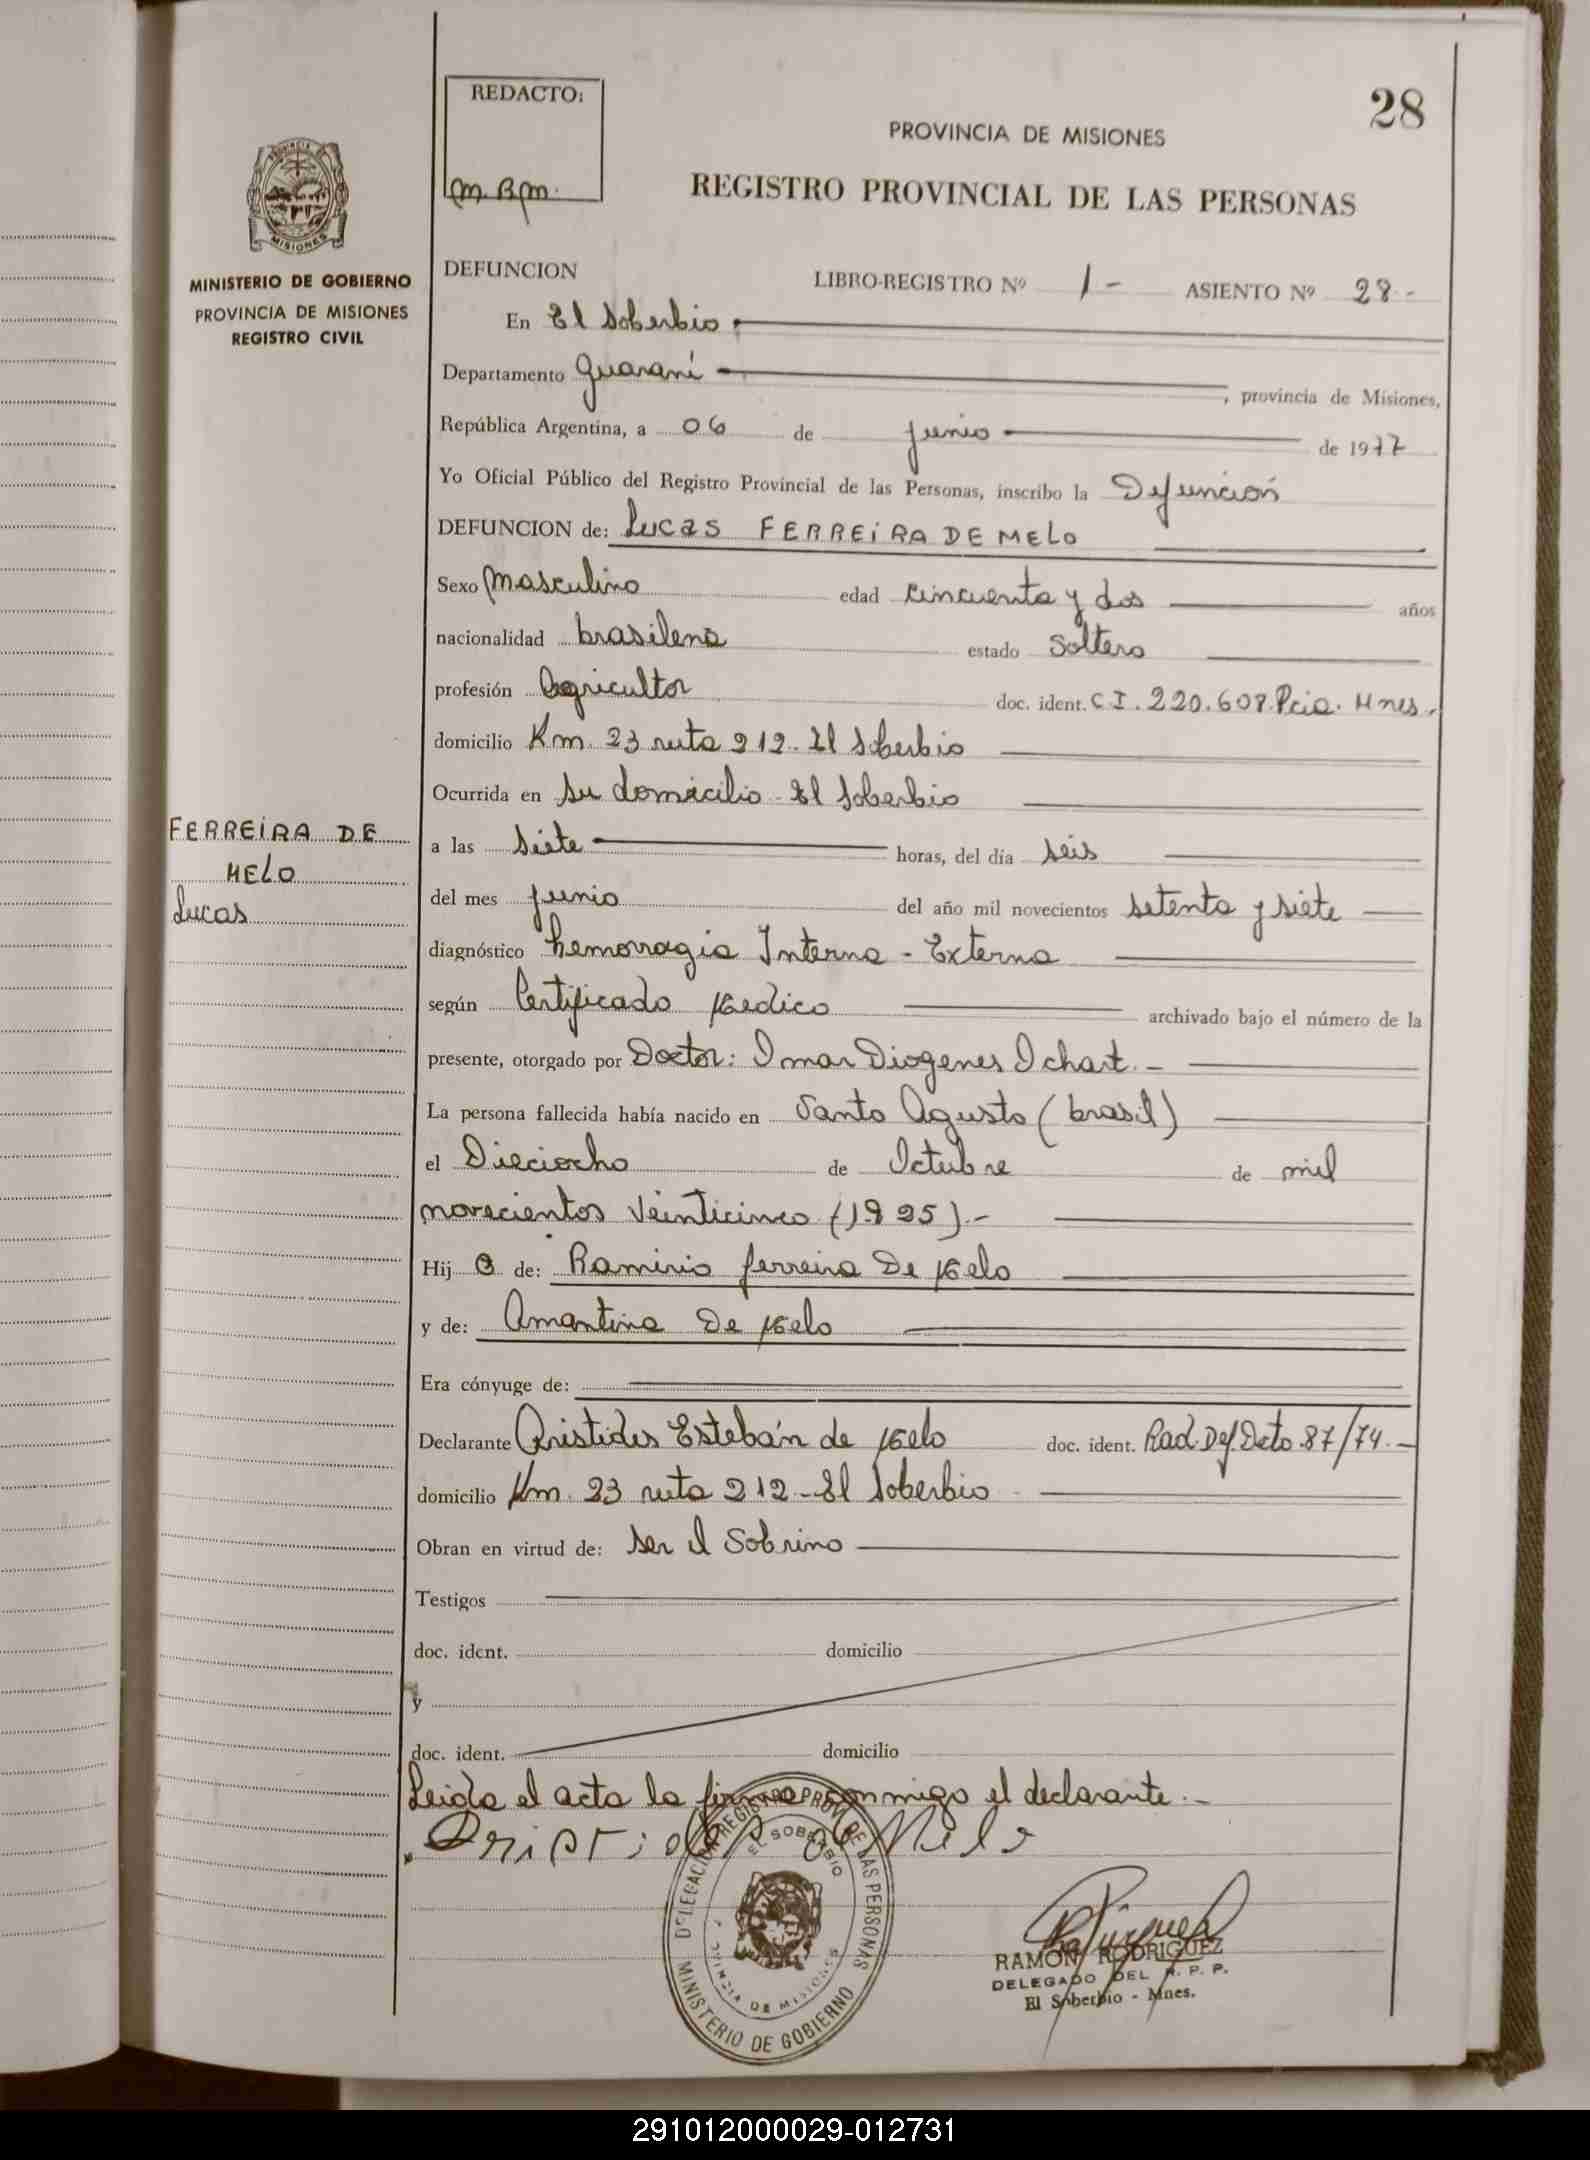 REDACTO:
M.R.M.
28
PROVINCIA DE MISIONES
REGISTRO PROVINCIAL DE LAS PERSONAS
PROVINCIA DE
MISIONES
MINISTERIO DE GOBIERNO
PROVINCIA DE MISIONES
REGISTRO CIVIL
DEFUNCION LIBRO-REGISTRO Nº 1- ASIENTO Nº 28-
En El Soberbio
Departamento Guaraní, provincia de Misiones,
República Argentina, a 06 de junio de 1977
Yo Oficial Público del Registro Provincial de las Personas, inscribo la Defunción
DEFUNCION de: Lucas FERREiRA DE MELO
Sexo Masculino edad cincuenta y dos años
nacionalidad brasilena estado Soltero
profesión Agricultor doc. ident. C.I. 220.608. Pcia. Mnes.
domicilio Km. 23 ruta 212- El Soberbio
Ocurrida en su domicilio- El Soberbio
FERREiRA DE
MELO
Lucas
a las siete horas, del día seis
del mes junio del año mil novecientos setenta y siete
diagnóstico hemorragia Interna - Externa
según Certificado Medico archivado bajo el número de la
presente, otorgado por Doctor: Omar Diogenes Ochart.-
La persona fallecida había nacido en Santo Agusto (brasil)
el Dieciocho de Octubre de mil
novecientos veinticinco (1925).-
Hij o de: Ramirio ferreira De Melo
y de: Amantina De Melo
Era cónyuge de:
Declarante Aristides Estebán de Melo doc. ident. Rad. Def. Dcto 87/74.-
domicilio Km. 23 ruta 212- El Soberbio
Obran en virtud de: ser el Sobrino
Testigos
doc. ident. domicilio
y
doc. ident. domicilio
Leida el acta la firma conmigo el declarante.-
Aristides d Melo
DELEGACION REGISTRO PROV. DE LAS PERSONAS
EL SOBERBIO
PROVINCIA DE MISIONES
MINISTERIO DE GOBIERNO
RAMON RODRIGUEZ
DELEGADO DEL R. P. P.
El Soberbio - Mnes.
291012000029-012731